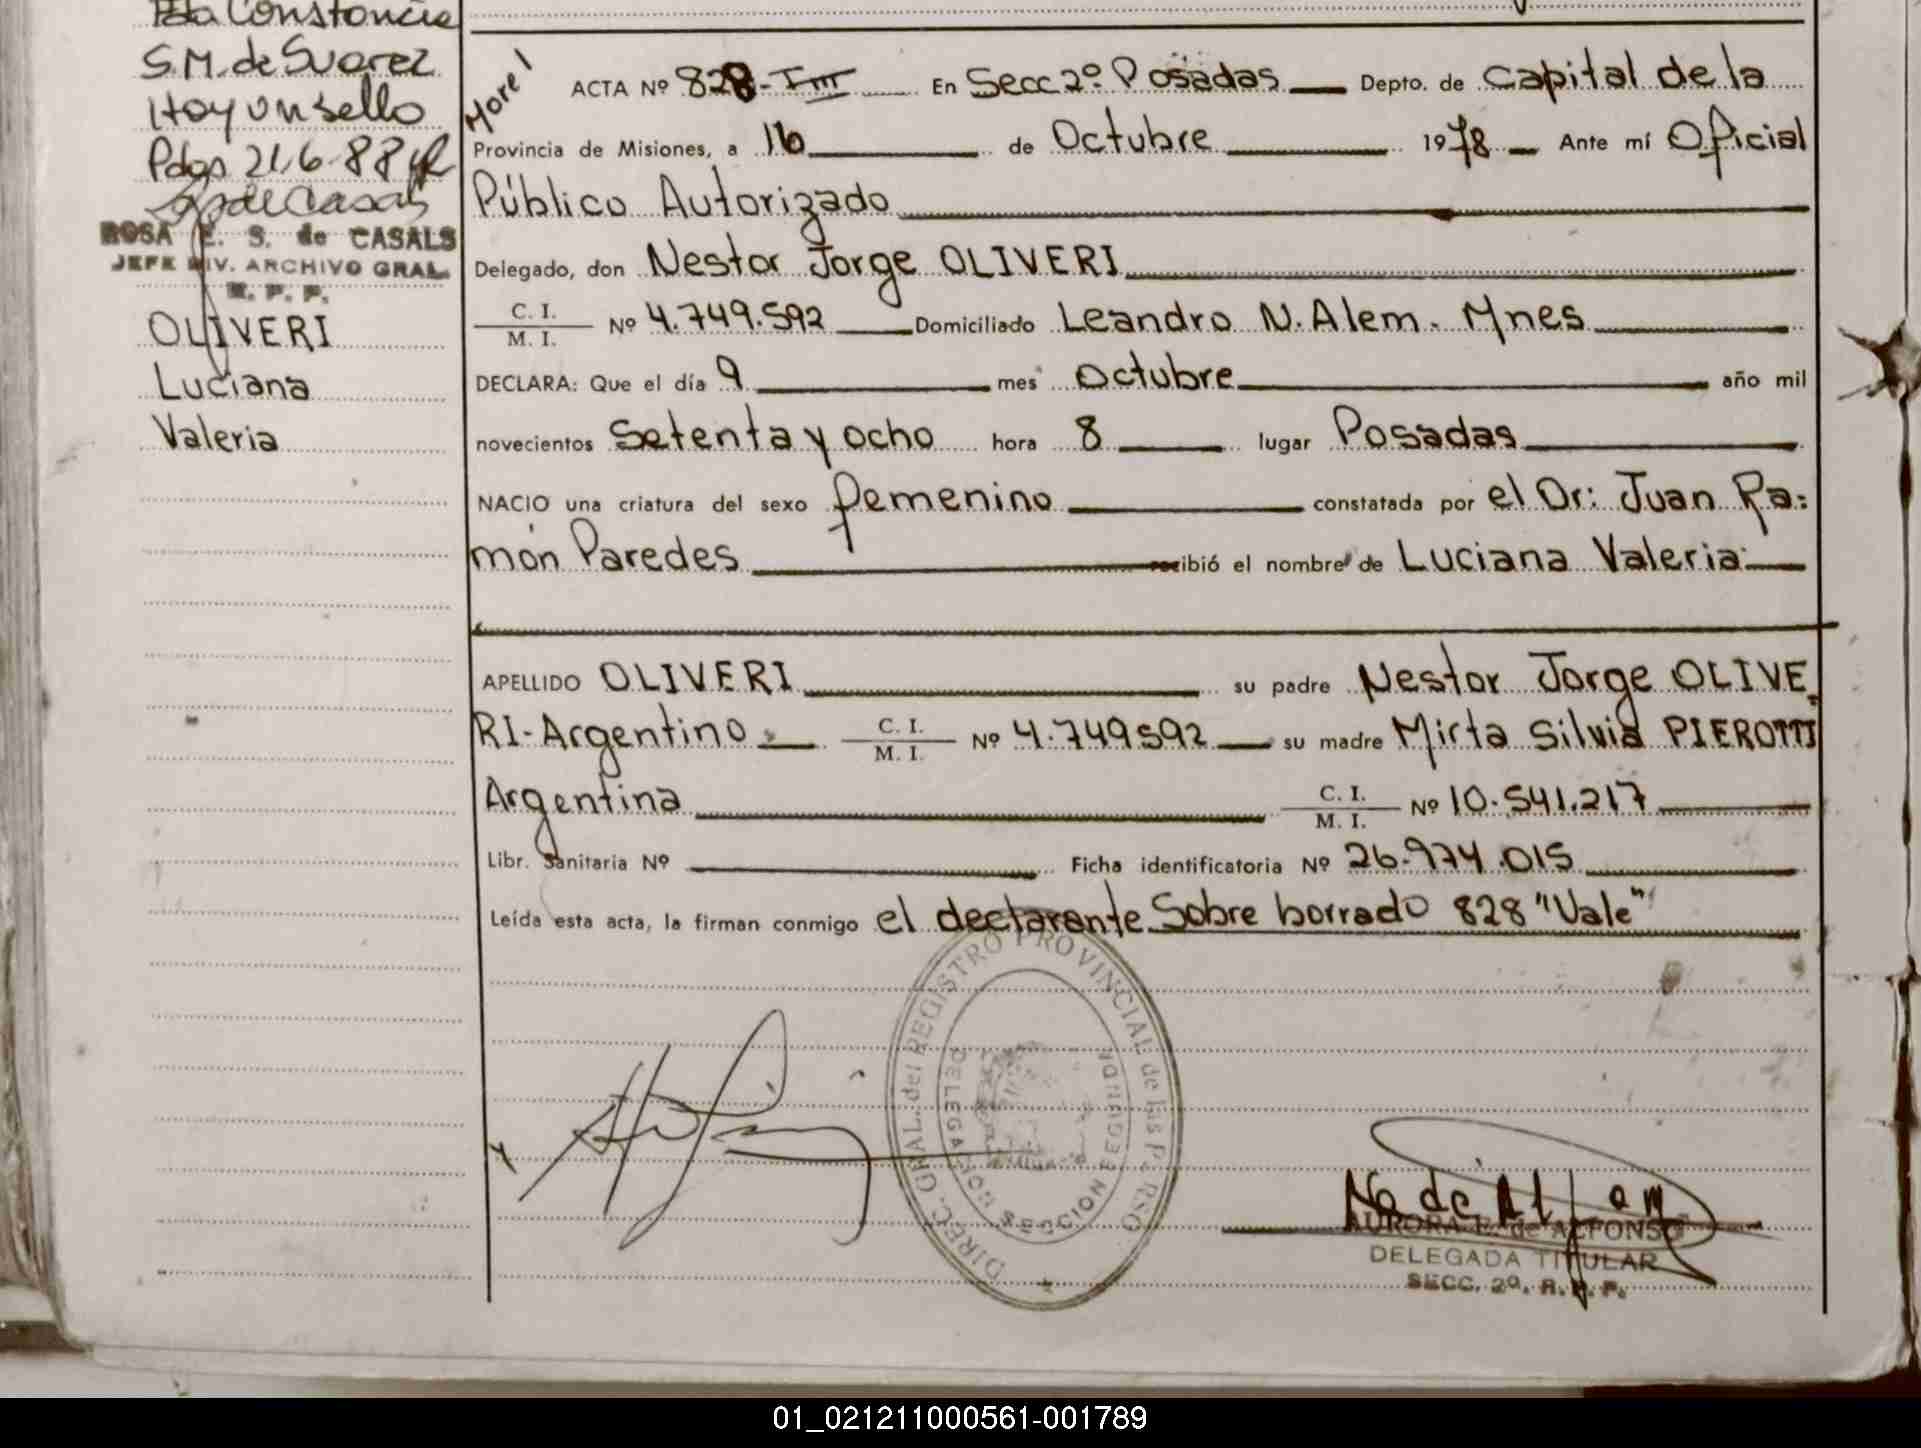 Pda Constancia
S.M. de Suarez
Hay un sello
Pdas 21.6.88
ROSA E. S. de CASALS
JEFE DIV. ARCHIVO GRAL.
R. P. P.
OLIVERI
Luciana
Valeria
ACTA Nº 828-III En Secc 2º Posadas Depto. de Capital de la
Provincia de Misiones, a 16 de Octubre 1978 Ante mí Oficial
Público Autorizado
Delegado, don Nestor Jorge OLIVERI
C. I.
M. I. Nº 4.749.592 Domiciliado Leandro N. Alem. Mnes
DECLARA: Que el día 9 mes Octubre año mil
novecientos Setenta y ocho hora 8 lugar Posadas
NACIO una criatura del sexo femenino constatada por el Dr: Juan Ra:
món Paredes recibió el nombre de Luciana Valeria
APELLIDO OLIVERI su padre Nestor Jorge OLIVE
RI-Argentino C. I.
M. I. Nº 4.749592 su madre Mirta Silvia PIEROTTI
Argentina C. I.
M. I. Nº 10.541.217
Libr. Sanitaria Nº Ficha identificatoria Nº 26.974.015
Leída esta acta, la firman conmigo el declarante Sobre borrado 828 "Vale"
DIREC. GRAL. del REGISTRO PROVINCIAL de las PERSO
DELEGACION SECCION SEGUNDA
AURORA E. de ALFONSO
DELEGADA TITULAR
SECC. 2º. R. P. P.
01_021211000561-001789